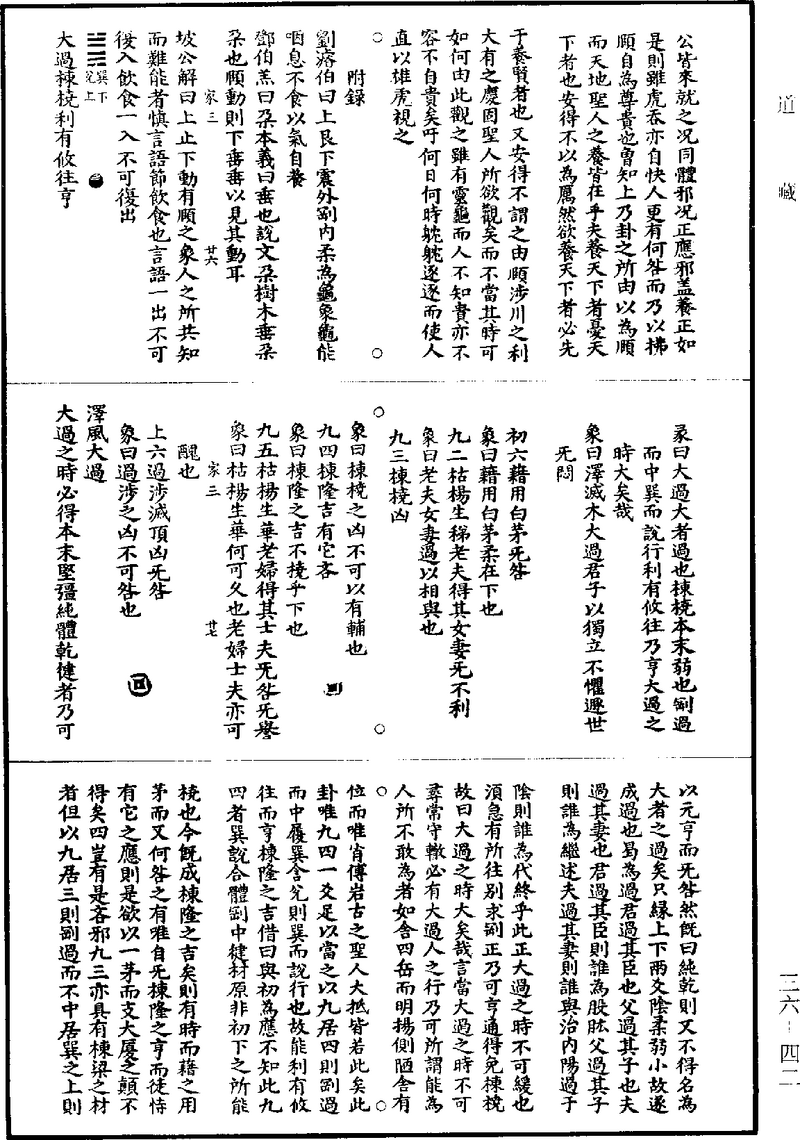 道藏
公皆來就之况同體邪况正應邪盖養正如
是則雖虎吞亦自快人更有何咎而乃以拂
頤自為尊貴也曾知上乃卦之所由以為頤
而天地聖人之養皆在乎夫養天下者憂天
下者也安得不以為厲然欲養天下者必先
于養賢者也又安得不謂之由頤涉川之利
大有之慶固聖人所欲觀矣而不當其時可
如何由此觀之雖有靈龜而人不知貴亦不
容不自貴矣吁何日何時眈眈逐逐而使人
直以雄虎視之
附錄
劉濬伯曰上艮下震外剛内柔為龜象龜能
咽息不食以氣自養
鄧伯羔曰朶本義曰垂也說文朶樹木垂朶
朶也頤動則下垂垂以見其動耳
家三 廿六
坡公解曰上止下動有頤之象人之所共知
而難能者慎言語節飲食也言語一出不可
復入飲食一入不可復出
䷛ 巽下兌上
大過棟橈利有攸往亨
彖曰大過大者過也棟橈本末弱也剛過
而中巽而說行利有攸往乃亨大過之
時大矣哉
象曰澤滅木大過君子以獨立不懼遯世
无悶
初六藉用白茅无咎
象曰藉用白茅柔在下也
九二枯楊生稊老夫得其女妻无不利
象曰老夫女妻過以相與也
九三棟橈凶
象曰棟橈之凶不可以有輔也
九四棟隆吉有它吝
象曰棟隆之吉不橈乎下也
九五枯楊生華老婦得其士夫无咎无譽
象曰枯楊生華何可久也老婦士夫亦可
家三 廿七
醜也
上六過涉滅頂凶无咎
象曰過涉之凶不可咎也
澤風大過
大過之時必得本末堅彊純體乾健者乃可
以元亨而无咎然既曰純乾則又不得名為
大者之過矣只緣上下兩爻陰柔弱小故遂
成過也曷為過君過其臣也父過其子也夫
過其妻也君過其臣則誰為股肱父過其子
則誰為繼述夫過其妻則誰與治内陽過于
陰則誰為代終乎此正大過之時不可緩也
須急有所往别求剛正乃可亨通得免棟橈
故曰大過之時大矣哉言當大過之時不可
尋常守轍必有大過人之行乃可所謂能為
人所不敢為者如舍四岳而明揚側陋舍有
位而唯肖傅岩古之聖人大抵皆若此矣此
卦唯九四一爻足以當之以九居四則剛過
而中履巽含兌則巽而說行也故能利有攸
往而亨棟隆之吉借曰與初為應不知此九
四者巽說合體剛中健材原非初下之所能
橈也今既成棟隆之吉矣則有時而藉之用
茅而又何咎之有唯自无棟隆之亨而徒恃
有它之應則是欲以一茅而支大廈之顛不
得矣四豈有是吝邪九三亦具有棟梁之材
者但以九居三則剛過而不中居巽之上則
三六-四二